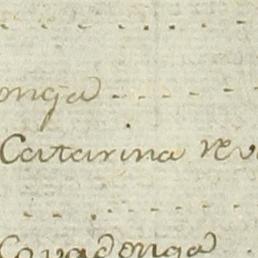 onga
Catarina rev
Covadonga